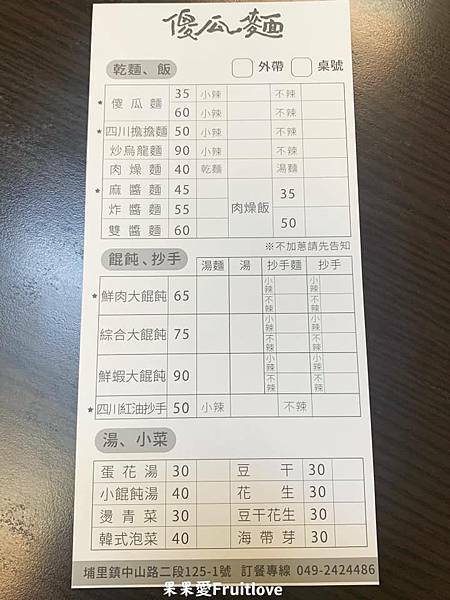 傻瓜麵
乾麵、飯 外帶 桌號
★ 傻瓜麵 35 小辣 不辣
60 小辣 不辣
★ 四川擔擔麵 50 小辣 不辣
炒烏龍麵 90 小辣 不辣
肉燥麵 40 乾麵 湯麵
★ 麻醬麵 45 肉燥飯 35
炸醬麵 55
雙醬麵 60 50
※不加蔥請先告知
餛飩、抄手 湯麵 湯 抄手麵 抄手
★ 鮮肉大餛飩 65 小辣 小辣
不辣 不辣
綜合大餛飩 75 小辣 小辣
不辣 不辣
鮮蝦大餛飩 90 小辣 小辣
不辣 不辣
★ 四川紅油抄手 50 小辣 不辣
湯、小菜
蛋花湯 30 豆干 30
小餛飩湯 40 花生 30
燙青菜 30 豆干花生 30
韓式泡菜 40 海帶芽 30
埔里鎮中山路二段125-1號 訂餐專線 049-2424486
果果愛Fruitlove